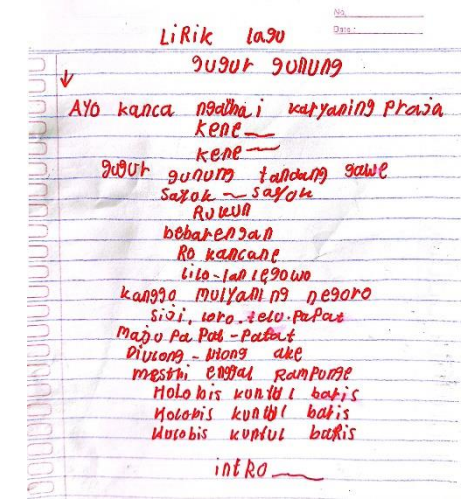 No.
Date:
LiRik lagu
gugur gunung
AYO kanca ngathai karyaning Praja
kene
kene
gugur gunung tandang gawe
Sayok ~ sayok
Rukun
bebarengan
Ro kancane
lilo-lan legowo
kanggo mulyaning negoro
siji, loro, telu. PaPat
maju Pa Pat - Patat
Diulong - ulong ake
mesthi enggal RamPunge
Holobis kuntul baris
Holobis kuntul baris
Holobis kuntul baRis
intRo